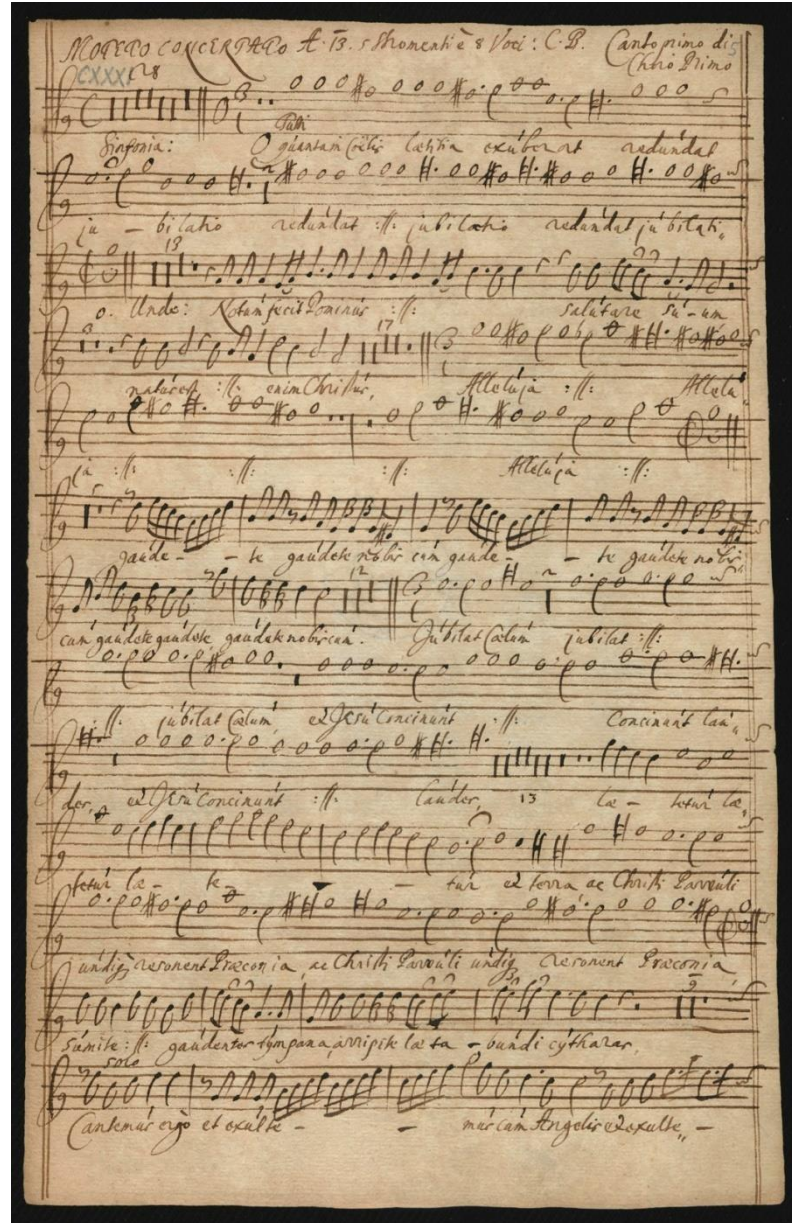 MOTETO CONCERTATO A. 13. 5 Stromenti è 8 Voci: C. B. Canto primo di 5
CXXXI 28 Choro Primo
Tutti
Sinfonia: O quantam Coelis laetitia exúberat redúndat
ju - bilatio redúndat :ſſ: jubilatio redúndat júbilati„
13
o. Unde: Notúm fecit Dominús :ſſ: salútare sú - um
17
natús est :ſſ: enim Christús, Allelúja :ſſ: Allelú„
ja :ſſ: :ſſ: :ſſ: Allelúja :ſſ:
gaúde - - te gaúdete nobis cúm gaúde - - te gaúdete nobis„
12
cúm gaúdete gaúdete gaúdete nobis cúm. Júbilat Coelúm júbilat :ſſ:
:ſſ: júbilat Coelúm, et Jesú Concinúnt :ſſ: Concinúnt laú„
des, et Jesú Concinúnt :ſſ: laúdes, 13 lae - tetúr lae„
tetúr lae - te - - túr et terra ac Christi Parvúli
úndiq resonent Praeconia, ac Christi Parvúli úndiq resonent Praeconia
Súmite :ſſ: gaúdenter tympana, arripite laeta - búndi cýtharas,
solo
Cantemús ergò et exúlte - - mús cúm Angelis et exulte„ -